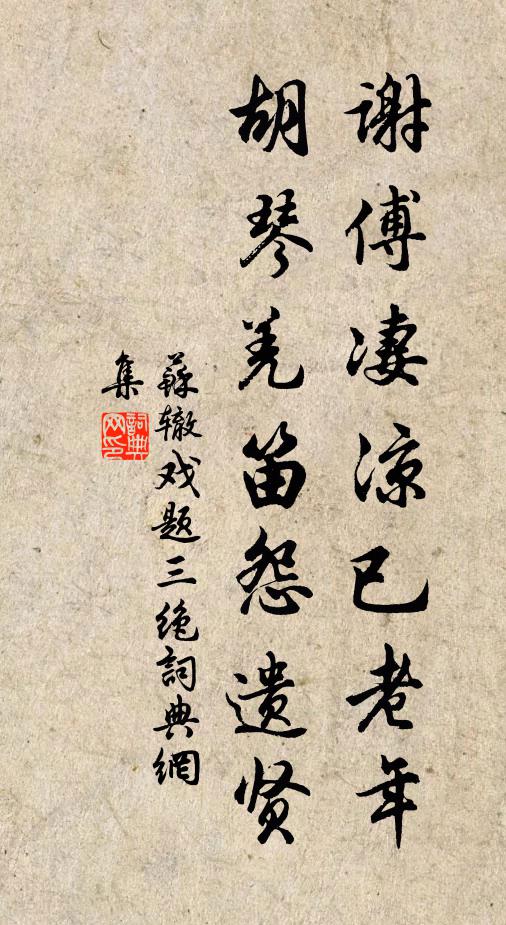 谢傅凄凉已老年
胡琴羌笛怨遗贤
苏辙戏题三绝詞典網
集
詞典
网印